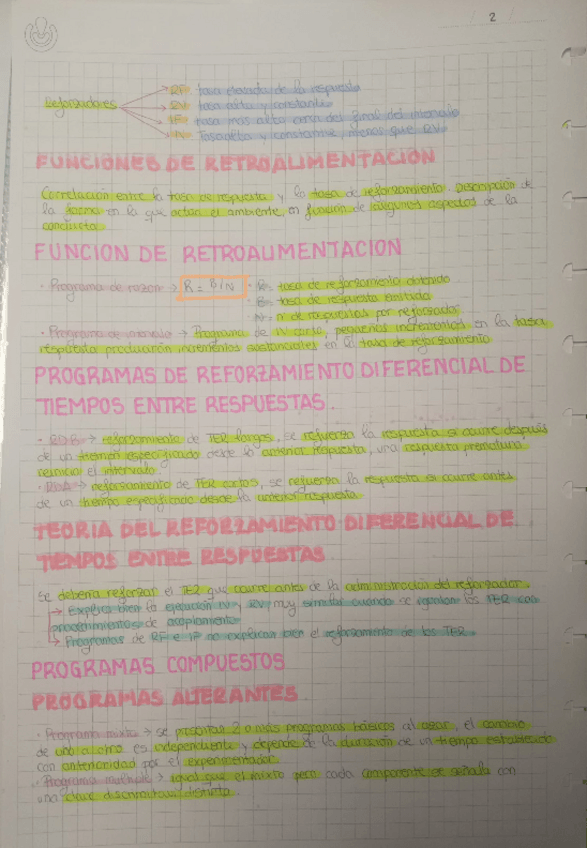 2
RF: tasa elevada de la respuesta
Reforzadores RV: tasa alta y constante
IF: tasa más alta cerca del final del intervalo
IV: Tasa alta y constante, menos que RV.
FUNCIONES DE RETROALIMENTACIÓN
Correlación entre la tasa de respuesta y la tasa de reforzamiento. Descripción de
la forma en la que actúa el ambiente, en función de algunos aspectos de la
conducta.
FUNCIÓN DE RETROALIMENTACIÓN
· Programa de razón → R = B/N · R= tasa de reforzamiento obtenido
· B= tasa de respuesta emitida
· N= nº de respuestas por reforzador
· Programa de intervalo → Programa de IV corto, pequeños incrementos en la tasa
respuesta producirán incrementos sustanciales en la tasa de reforzamiento
PROGRAMAS DE REFORZAMIENTO DIFERENCIAL DE
TIEMPOS ENTRE RESPUESTAS.
· RDB → reforzamiento de TER largos, se refuerza la respuesta si ocurre después
de un tiempo especificado desde la anterior respuesta, una respuesta prematura
reinicia el intervalo
· RDA → reforzamiento de TER cortos, se refuerza la respuesta si ocurre antes
de un tiempo especificado desde la anterior respuesta.
TEORIA DEL REFORZAMIENTO DIFERENCIAL DE
TIEMPOS ENTRE RESPUESTAS
Se debería reforzar el TER que ocurre antes de la administración del reforzador.
→ Explica bien la ejecución IV, RV, muy similar cuando se igualan los TER con
procedimientos de acoplamiento
→ Programas de RF e IF no explican bien el reforzamiento de los TER.
PROGRAMAS COMPUESTOS
PROGRAMAS ALTERANTES
· Programa mixto → se presentan 2 o más programas básicos al azar, el cambio
de uno a otro es independiente y depende de la duración de un tiempo establecido
con anterioridad por el experimentador.
· Programa múltiple → igual que el mixto pero cada componente se señala con
una clave discriminativa distinta.